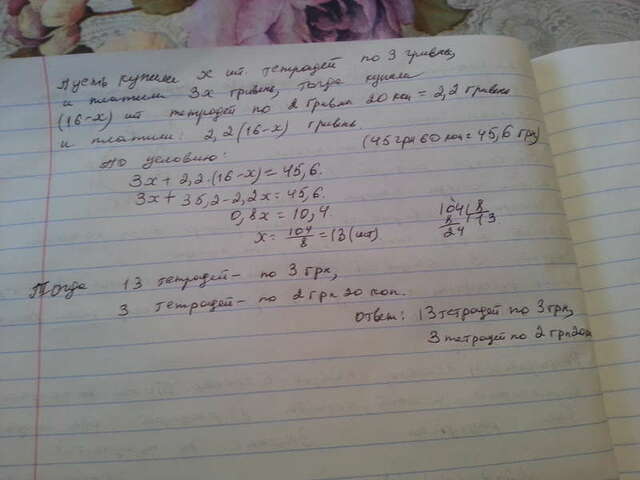 Пусть купили x шт. тетрадей по 3 гривны,
и платили 3x гривень, тогда купили
(16-x) шт тетрадей по 2 гривн 20 коп = 2,2 гривень
и платили: 2,2 (16-x) гривень.
(45 грн 60 коп = 45,6 грн)
По условию:
3x + 2,2·(16-x) = 45,6.
3x + 35,2 - 2,2x = 45,6.
0,8x = 10,4.
x = 104/8 = 13 (шт)
104 | 8
8 | 13
24
Тогда 13 тетрадей - по 3 грн,
3 тетрадей - по 2 грн 20 коп.
Ответ: 13 тетрадей по 3 грн,
3 тетрадей по 2 грн 20